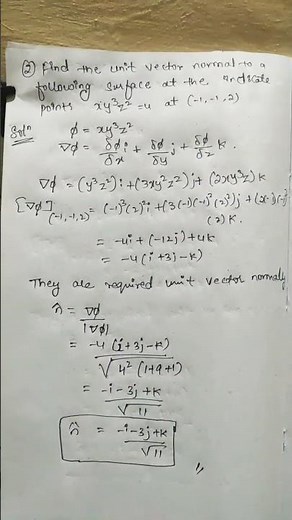 ② Find the unit vector normal to a
following surface at the indicate
points xy³z² = u at (-1,-1,2)
Solⁿ φ = xy³z²
∇φ = δφ/δx i + δφ/δy j + δφ/δz k.
∇φ = (y³z²)i + (3xy²z²)j + (2xy³z)k
[∇φ](-1,-1,2) = (-1)³(2)²i + (3(-1)(-1)²(2)²)j + (2(-1)(-1)³
(2)k.
= -4i + (-12j) + 4k
= -4(i+3j-k)
They are required unit vector normally
n̂ = ∇φ/|∇φ|
= -4(i+3j-k)/√4²(1+9+1)
= -i-3j+k/√11
n̂ = -i-3j+k/√11